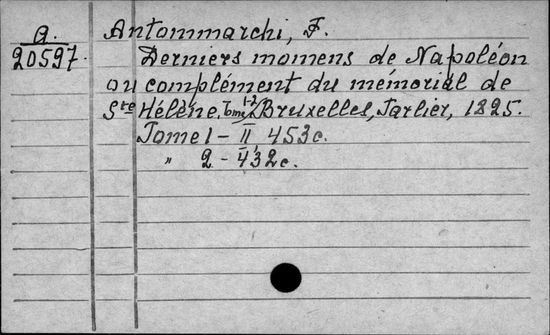 A.
20527.
Antommarchi, F.
Derniers momens de Napoléon
ou complément du mémorial de
Ste Hélène. Tome 1-2. Bruxelles, Tarlier, 1825.
Tome 1 – II, 453c.
" 2 – 432c.